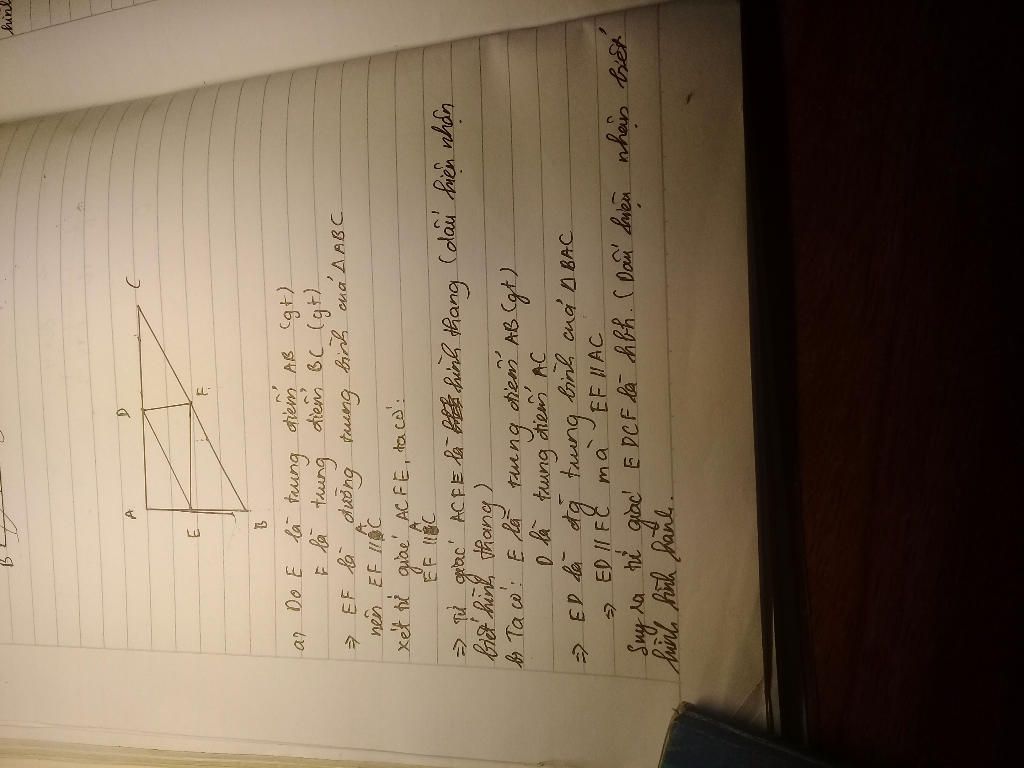 A
D
C
E
F
B
a, Do E là trung điểm AB (gt)
F là trung điểm BC (gt)
=> EF là đường trung bình của △ABC
nên EF // AC
xét tứ giác ACFE, ta có:
EF // AC
=> tứ giác ACFE là hình thang (dấu hiện nhận
biết hình thang)
b, Ta có: E là trung điểm AB (gt)
D là trung điểm AC
=> ED là đg trung bình của △BAC
=> ED // FC mà EF // AC
Suy ra tứ giác EDCF là hbh. (Dấu hiện nhận biết
hình hình hành.